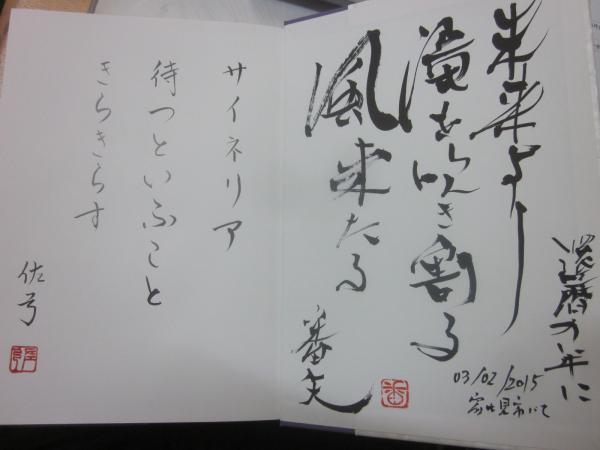 未来より
滝を吹き割る
風来たる
番矢
還暦の年に
03/02/2015
富士見市にて
サイネリア
待つといふこと
きらきらす
佐弓